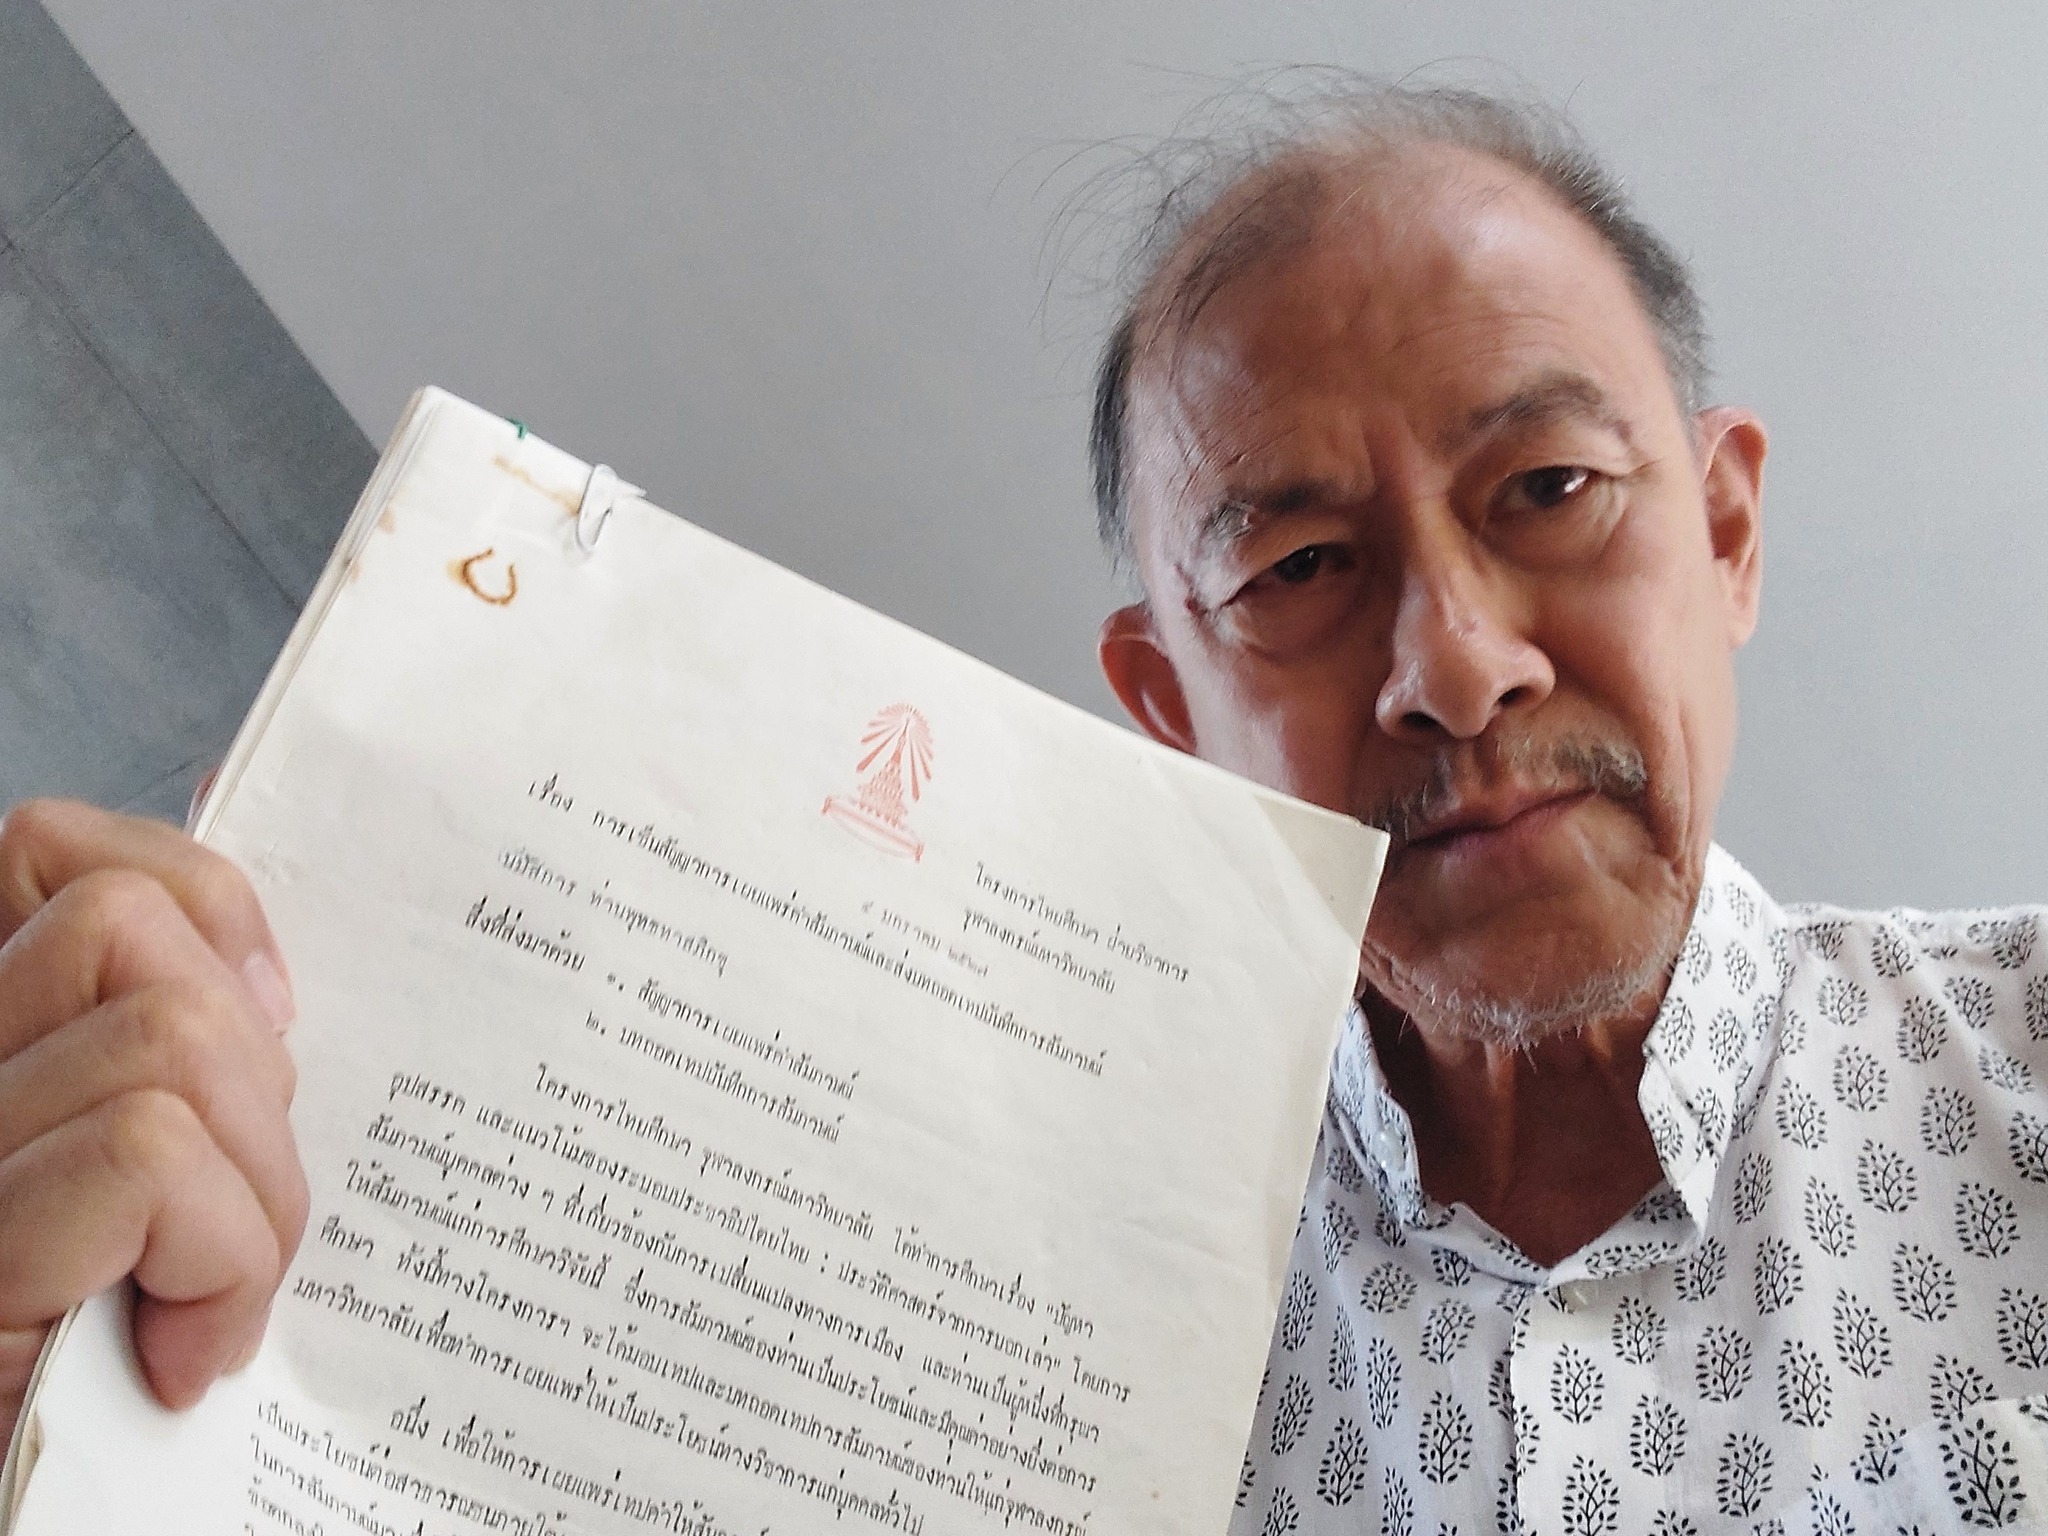 โครงการไทยศึกษา ฝ่ายวิชาการ
จุฬาลงกรณ์มหาวิทยาลัย
๙ มกราคม ๒๕๒๗
เรื่อง การเซ็นสัญญาการเผยแพร่คำสัมภาษณ์และส่งบทถอดเทปบันทึกการสัมภาษณ์
นมัสการ ท่านพุทธทาสภิกขุ
สิ่งที่ส่งมาด้วย ๑. สัญญาการเผยแพร่คำสัมภาษณ์
๒. บทถอดเทปบันทึกการสัมภาษณ์
โครงการไทยศึกษา จุฬาลงกรณ์มหาวิทยาลัย ได้ทำการศึกษาเรื่อง "ปัญหา
อุปสรรค และแนวโน้มของระบอบประชาธิปไตยไทย : ประวัติศาสตร์จากการบอกเล่า" โดยการ
สัมภาษณ์บุคคลต่าง ๆ ที่เกี่ยวข้องกับการเปลี่ยนแปลงทางการเมือง และท่านเป็นผู้หนึ่งที่กรุณา
ให้สัมภาษณ์แก่การศึกษาวิจัยนี้ ซึ่งการสัมภาษณ์ของท่านเป็นประโยชน์และมีคุณค่าอย่างยิ่งต่อการ
ศึกษา ทั้งนี้ทางโครงการฯ จะได้มอบเทปและบทถอดเทปการสัมภาษณ์ของท่านให้แก่จุฬาลงกรณ์
มหาวิทยาลัยเพื่อทำการเผยแพร่ให้เป็นประโยชน์ทางวิชาการแก่บุคคลทั่วไป
อนึ่ง เพื่อให้การเผยแพร่เทปคำให้สัม
เป็นประโยชน์ต่อสาธารณชนภายใต้
ในการสัมภาษณ์